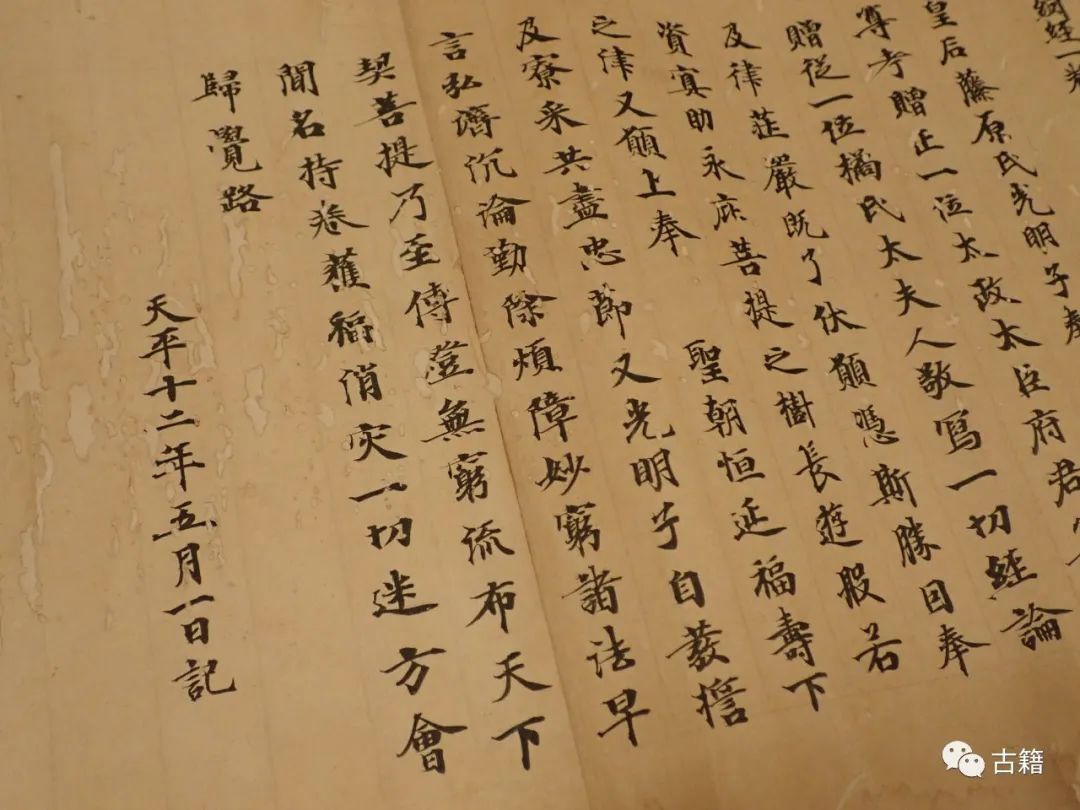 經一卷
皇后藤原氏光明子奉
尊考贈正一位太政太臣府君
贈從一位橘氏太夫人敬寫一切經論
及律莊嚴既了伏願憑斯勝因奉
資冥助永庇菩提之樹長遊般若
之律又願上奉 聖朝恒延福壽下
及寮采共盡忠節又光明子自發誓
言弘濟沉淪勤除煩障妙窮諸法早
契菩提乃至傳燈無窮流布天下
聞名持卷獲福消灾一切迷方會
歸覺路
天平十二年五月一日記
古籍